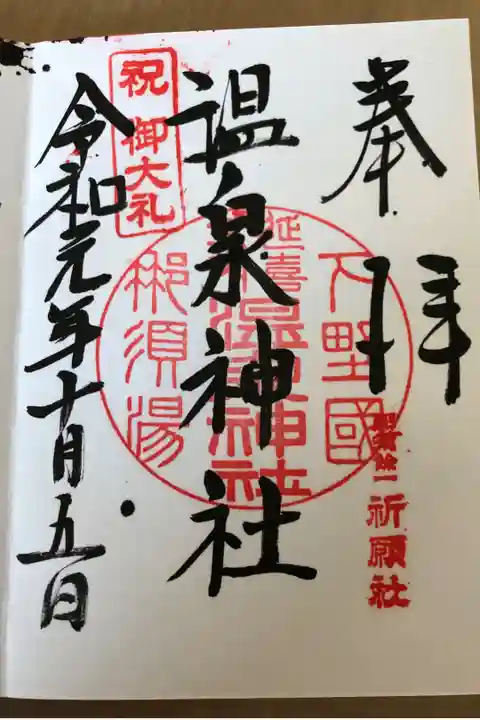 奉拝
那須余一祈願社
温泉神社
下野國
延喜式内温泉神社
那須湯本
祝 御大礼
令和元年十月五日